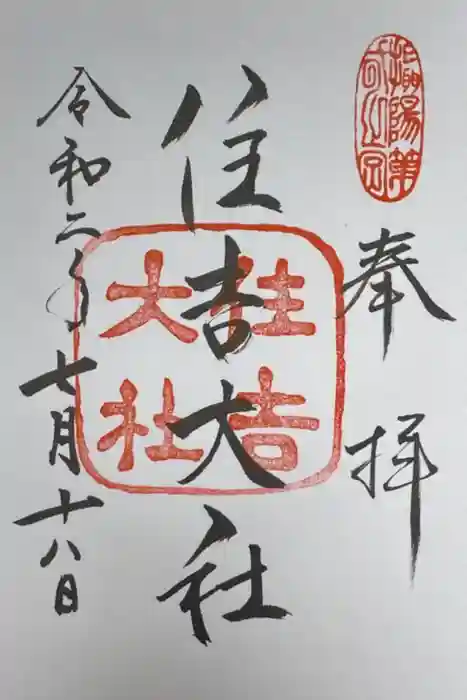 奉拝
住吉大社
住吉大社
令和二年七月十八日